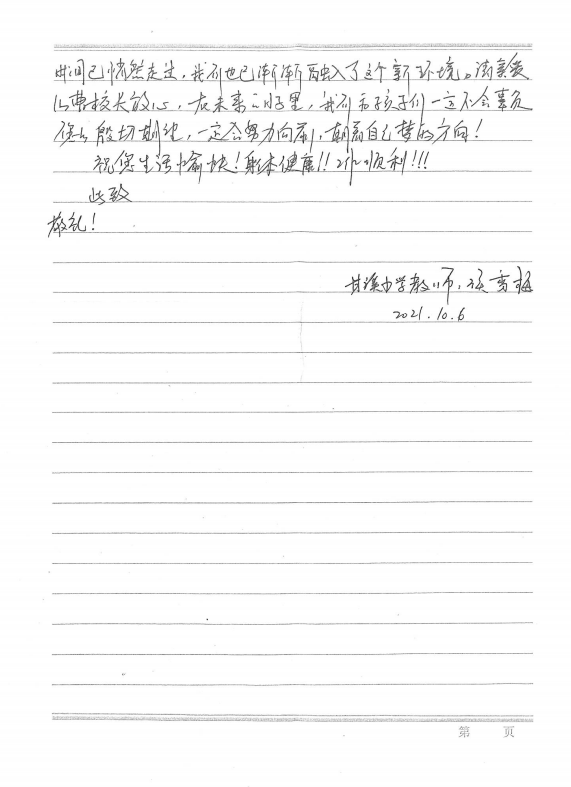 时间已悄然走过，我们也已渐渐融入了这个新环境。请亲爱
的曹校长放心，在未来的日子里，我们和孩子们一定不会辜负
您的殷切期望，一定会努力向前，朝着自己梦的方向！
祝您生活愉快！身体健康！！工作顺利！！！
此致
敬礼！
甘溪中学教师：
2021.10.6
第 页